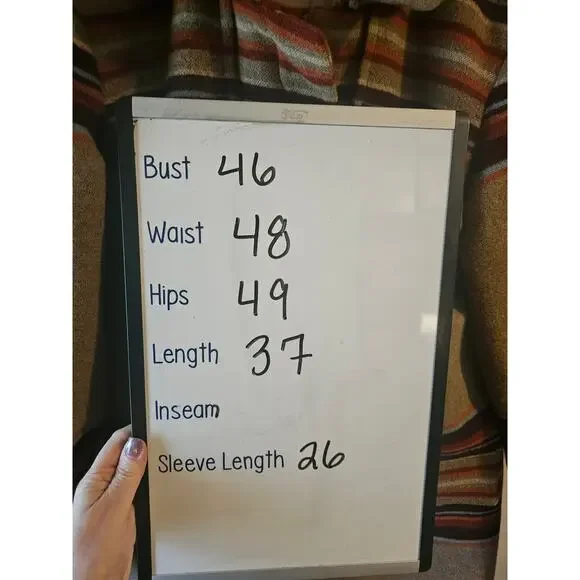 Bust 46
Waist 48
Hips 49
Length 37
Inseam
Sleeve Length 26